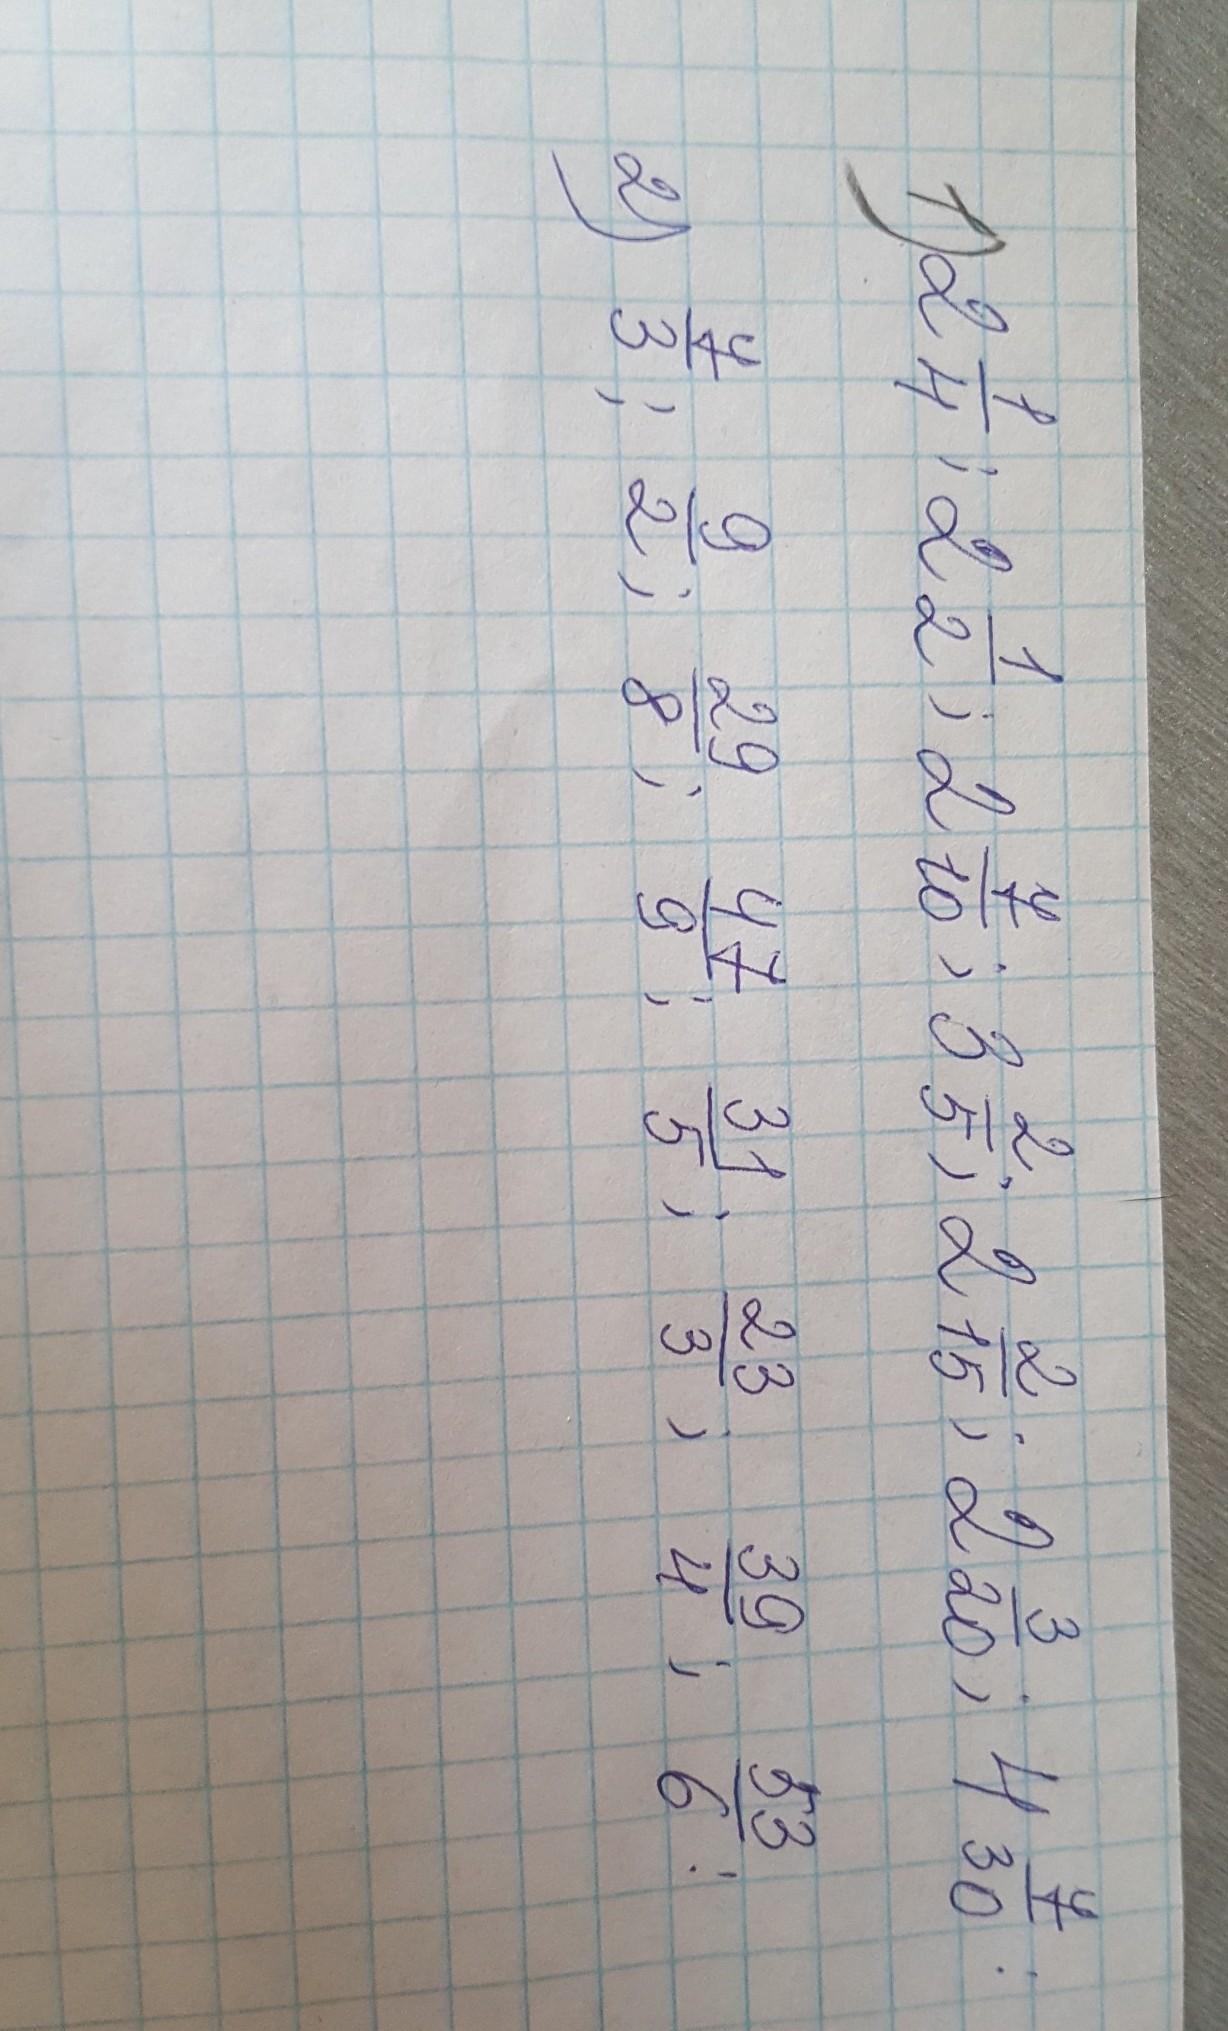 1) 2 1/4 ; 2 1/2 ; 2 7/10 ; 3 2/5 ; 2 2/15 ; 2 3/20 ; 4 7/30 :
2) 7/3 ; 9/2 ; 29/8 ; 47/9 ; 31/5 ; 23/3 ; 39/4 ; 53/6 :